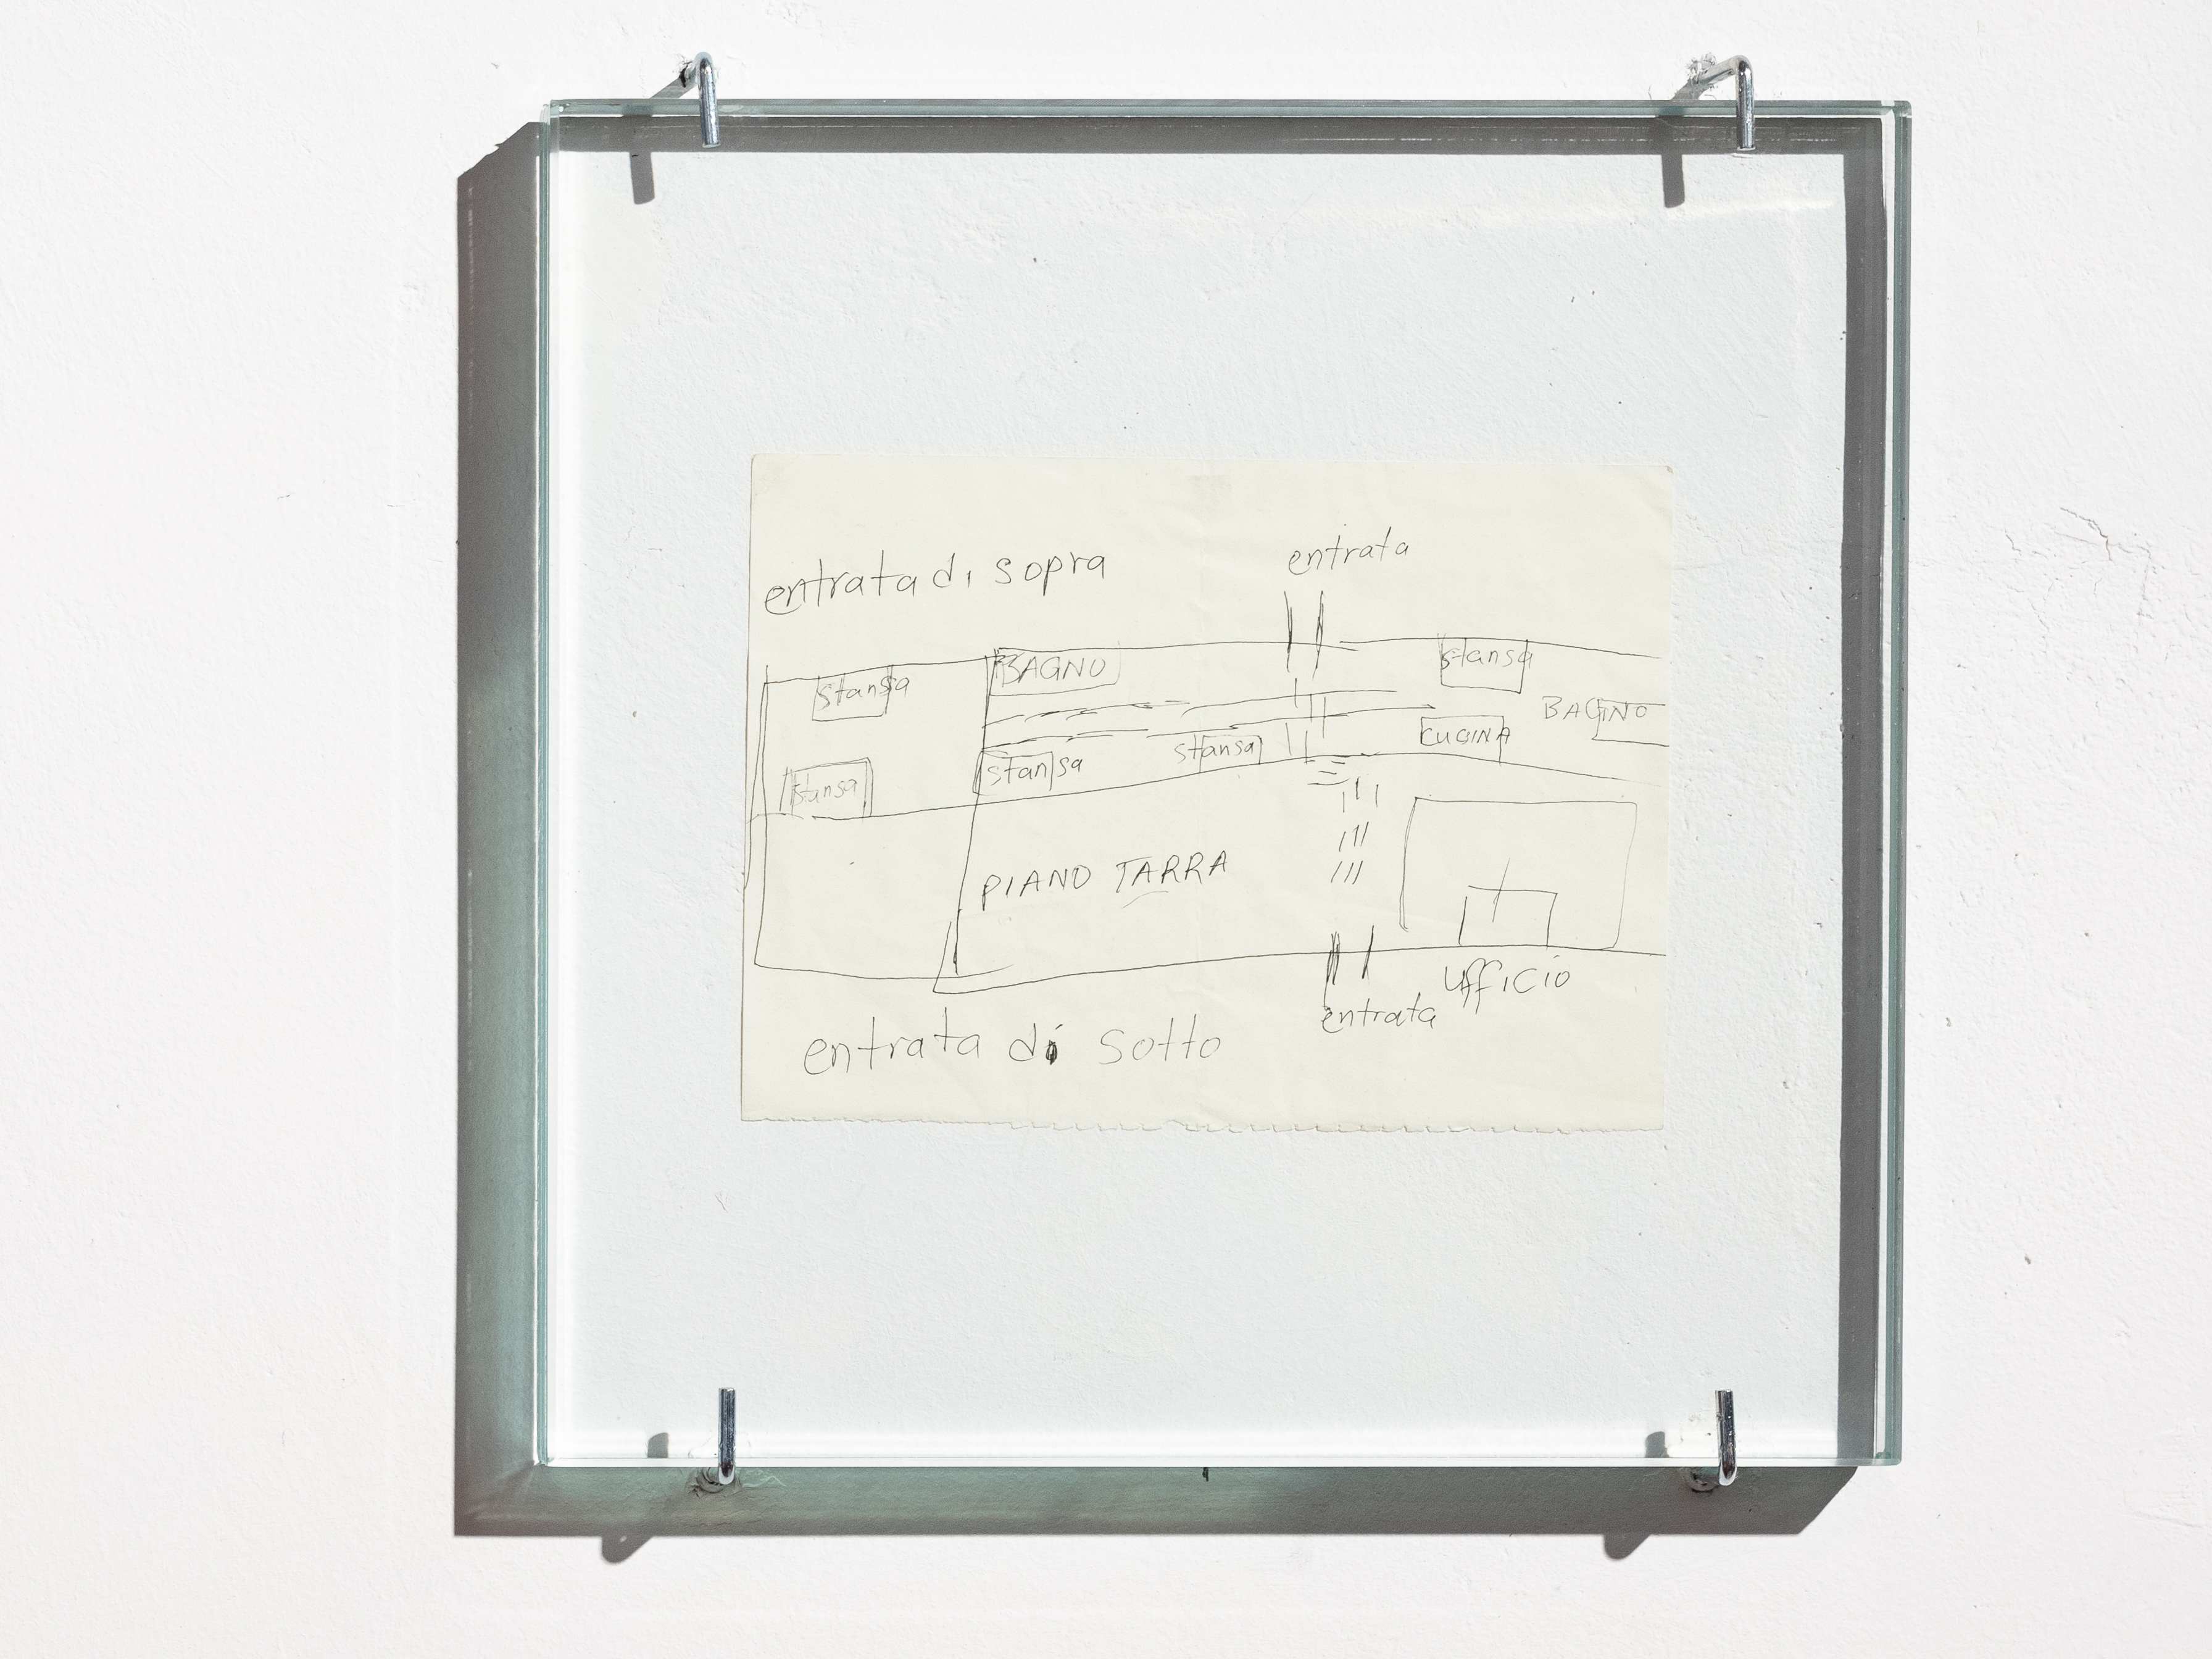 entrata di sopra
entrata
stansa
BAGNO
stansa
BAGNO
stansa
stansa
stansa
CUCINA
PIANO TARRA
ufficio
entrata
entrata di sotto